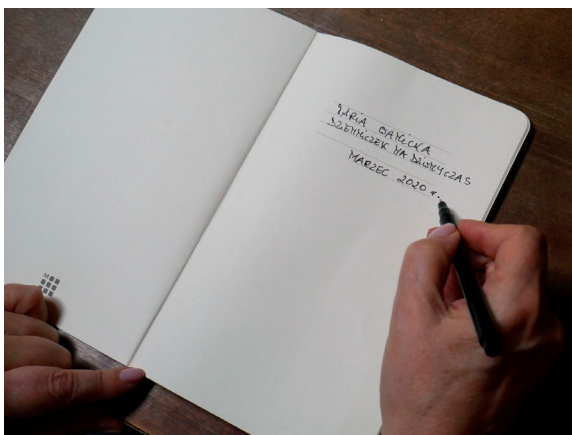 MARIA DANICKA
DZIENNICZEK NA DZIWNY CZAS
MARZEC 2020 r.
M